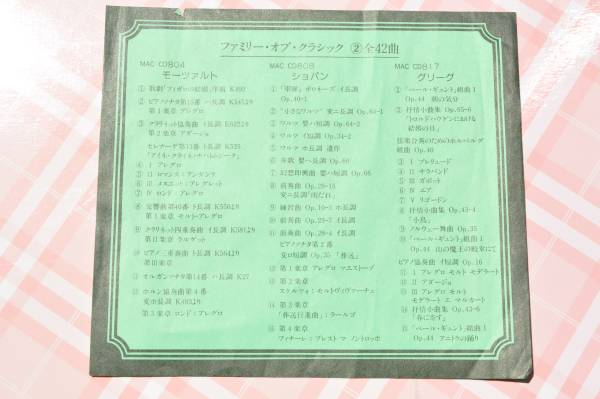 ファミリー・オブ・クラシック ②全42曲
MAC CD804
モーツァルト
① 歌劇「フィガロの結婚」序曲 K492
② ピアノソナタ第15番 ハ長調 K545より
第1楽章 アレグロ
③ クラリネット協奏曲 イ長調 K622より
第2楽章 アダージョ
セレナーデ第13番 ト長調 K525
「アイネ・クライネ・ナハトムジーク」
④ I アレグロ
⑤ II ロマンス:アンダンテ
⑥ III メヌエット:アレグレット
⑦ IV ロンド:アレグロ
⑧ 交響曲第40番 ト短調 K550より
第1楽章 モルト・アレグロ
⑨ クラリネット五重奏曲 イ長調 K581より
⑩ ピアノ三重奏曲 ト長調 K564より
第III楽章
⑪ オルガンソナタ第14番 ハ長調 K27
⑫ ホルン協奏曲第4番
変ホ長調 K495より
第3楽章 ロンド:アレグロ
MAC CD808
ショパン
① 「軍隊」ポロネーズ イ長調
Op.40-1
② 「小さなワルツ」変ニ長調 Op.64-1
③ ワルツ 嬰ハ短調 Op.64-2
④ ワルツ イ短調 Op.34-2
⑤ ワルツ ホ長調 遺作
⑥ 舟歌 嬰ヘ長調 Op.60
⑦ 幻想即興曲 嬰ハ短調 Op.66
⑧ 前奏曲 Op.28-15
変ニ長調「雨だれ」
⑨ 練習曲 Op.10-3 ホ長調
⑩ 前奏曲 Op.28-7 イ長調
⑪ 前奏曲 Op.28-4 ホ短調
ピアノソナタ第2番
変ロ短調 Op.35「葬送」
⑫ 第1楽章 アレグロ マエストーソ
⑬ 第2楽章
スケルツォ:モルトヴィヴァーチェ
⑭ 第3楽章
「葬送行進曲」:ラールゴ
⑮ 第4楽章
フィナーレ:プレスト マ ノントロッポ
MAC CD817
グリーグ
① 「ペール・ギュント」組曲1
Op.44 朝の気分
② 抒情小曲集 Op.65-6
「トロルドハウゲンにおける
結婚の日」
弦楽合奏のためのホルベルグ
組曲 Op.40
③ I プレリュード
④ II サラバンド
⑤ III ガボット
⑥ IV エア
⑦ V リゴードン
⑧ 抒情小曲集 Op.43-4
「小鳥」
⑨ ノルウェー舞曲 Op.35
⑩ 「ペール・ギュント」組曲1
Op.44 山の魔王の殿堂にて
ピアノ協奏曲 イ短調 Op.16
⑪ I アレグロ モルト モデラート
⑫ II アダージョ
⑬ III アレグロ モルト
モデラート エ マルカート
⑭ 抒情小曲集 Op.43-6
「春に寄す」
⑮ 「ペール・ギュント」組曲1
Op.44 アニトラの踊り